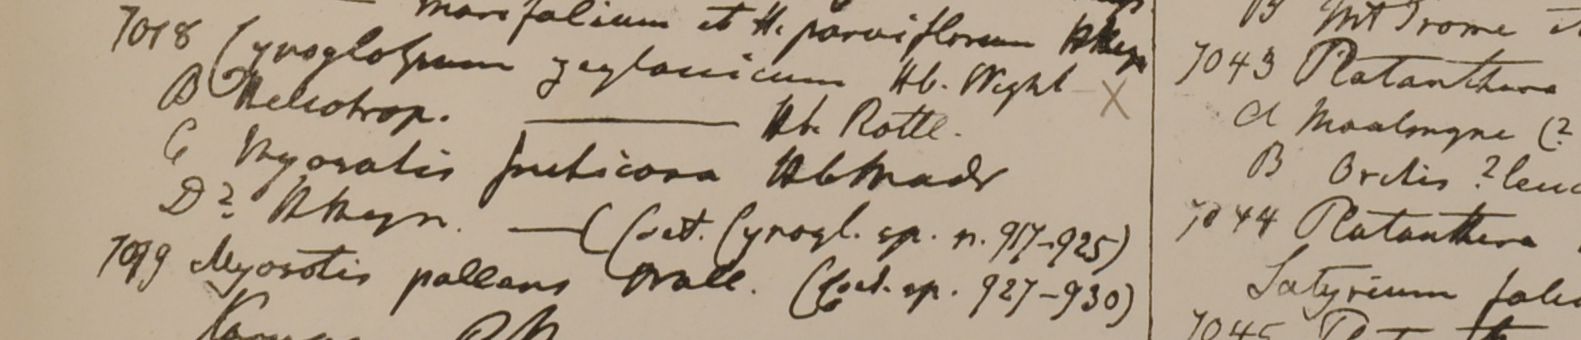 marifolium et H. parviflorum HHeyn
7018 Cynoglossum zeylanicum Hb. Wight X
B Heliotrop. ——— Hb. Rottl.
C Myosotis fruticosa Hb Madr
D? HHeyn. —( Cat. Cynogl. sp. n. 917-925)
7019 Myosotis pallens Wall. (Cat. sp. 927-930)
B Mt Trome
7043 Platanthera
A
B Orchis ? leuc
7044 Platanthera
Satyrium
7045